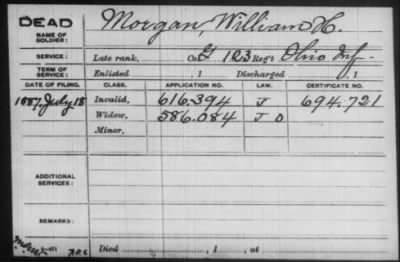 DEAD Morgan, William H.
NAME OF SOLDIER:
SERVICE: Late rank, Co. G 123 Reg't Ohio Inf.
TERM OF SERVICE: Enlisted , 1 Discharged , 1
DATE OF FILING. CLASS. APPLICATION NO. LAW. CERTIFICATE NO.
1887 July 18 Invalid, 616.394 J 694.721
Widow, 586.084 J D
Minor,
ADDITIONAL SERVICES:
REMARKS:
Died , 1 , at